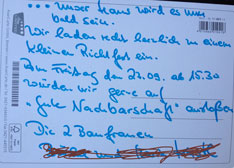 ... unser Haus wird es nun
bald sein.
Wir laden recht herzlich zu einem
kleinen Richtfest ein.
Am Freitag den 22.09. ab 15.30
würden wir gerne auf
"gute Nachbarschaft" anstoßen
Die 2 Baufrauen